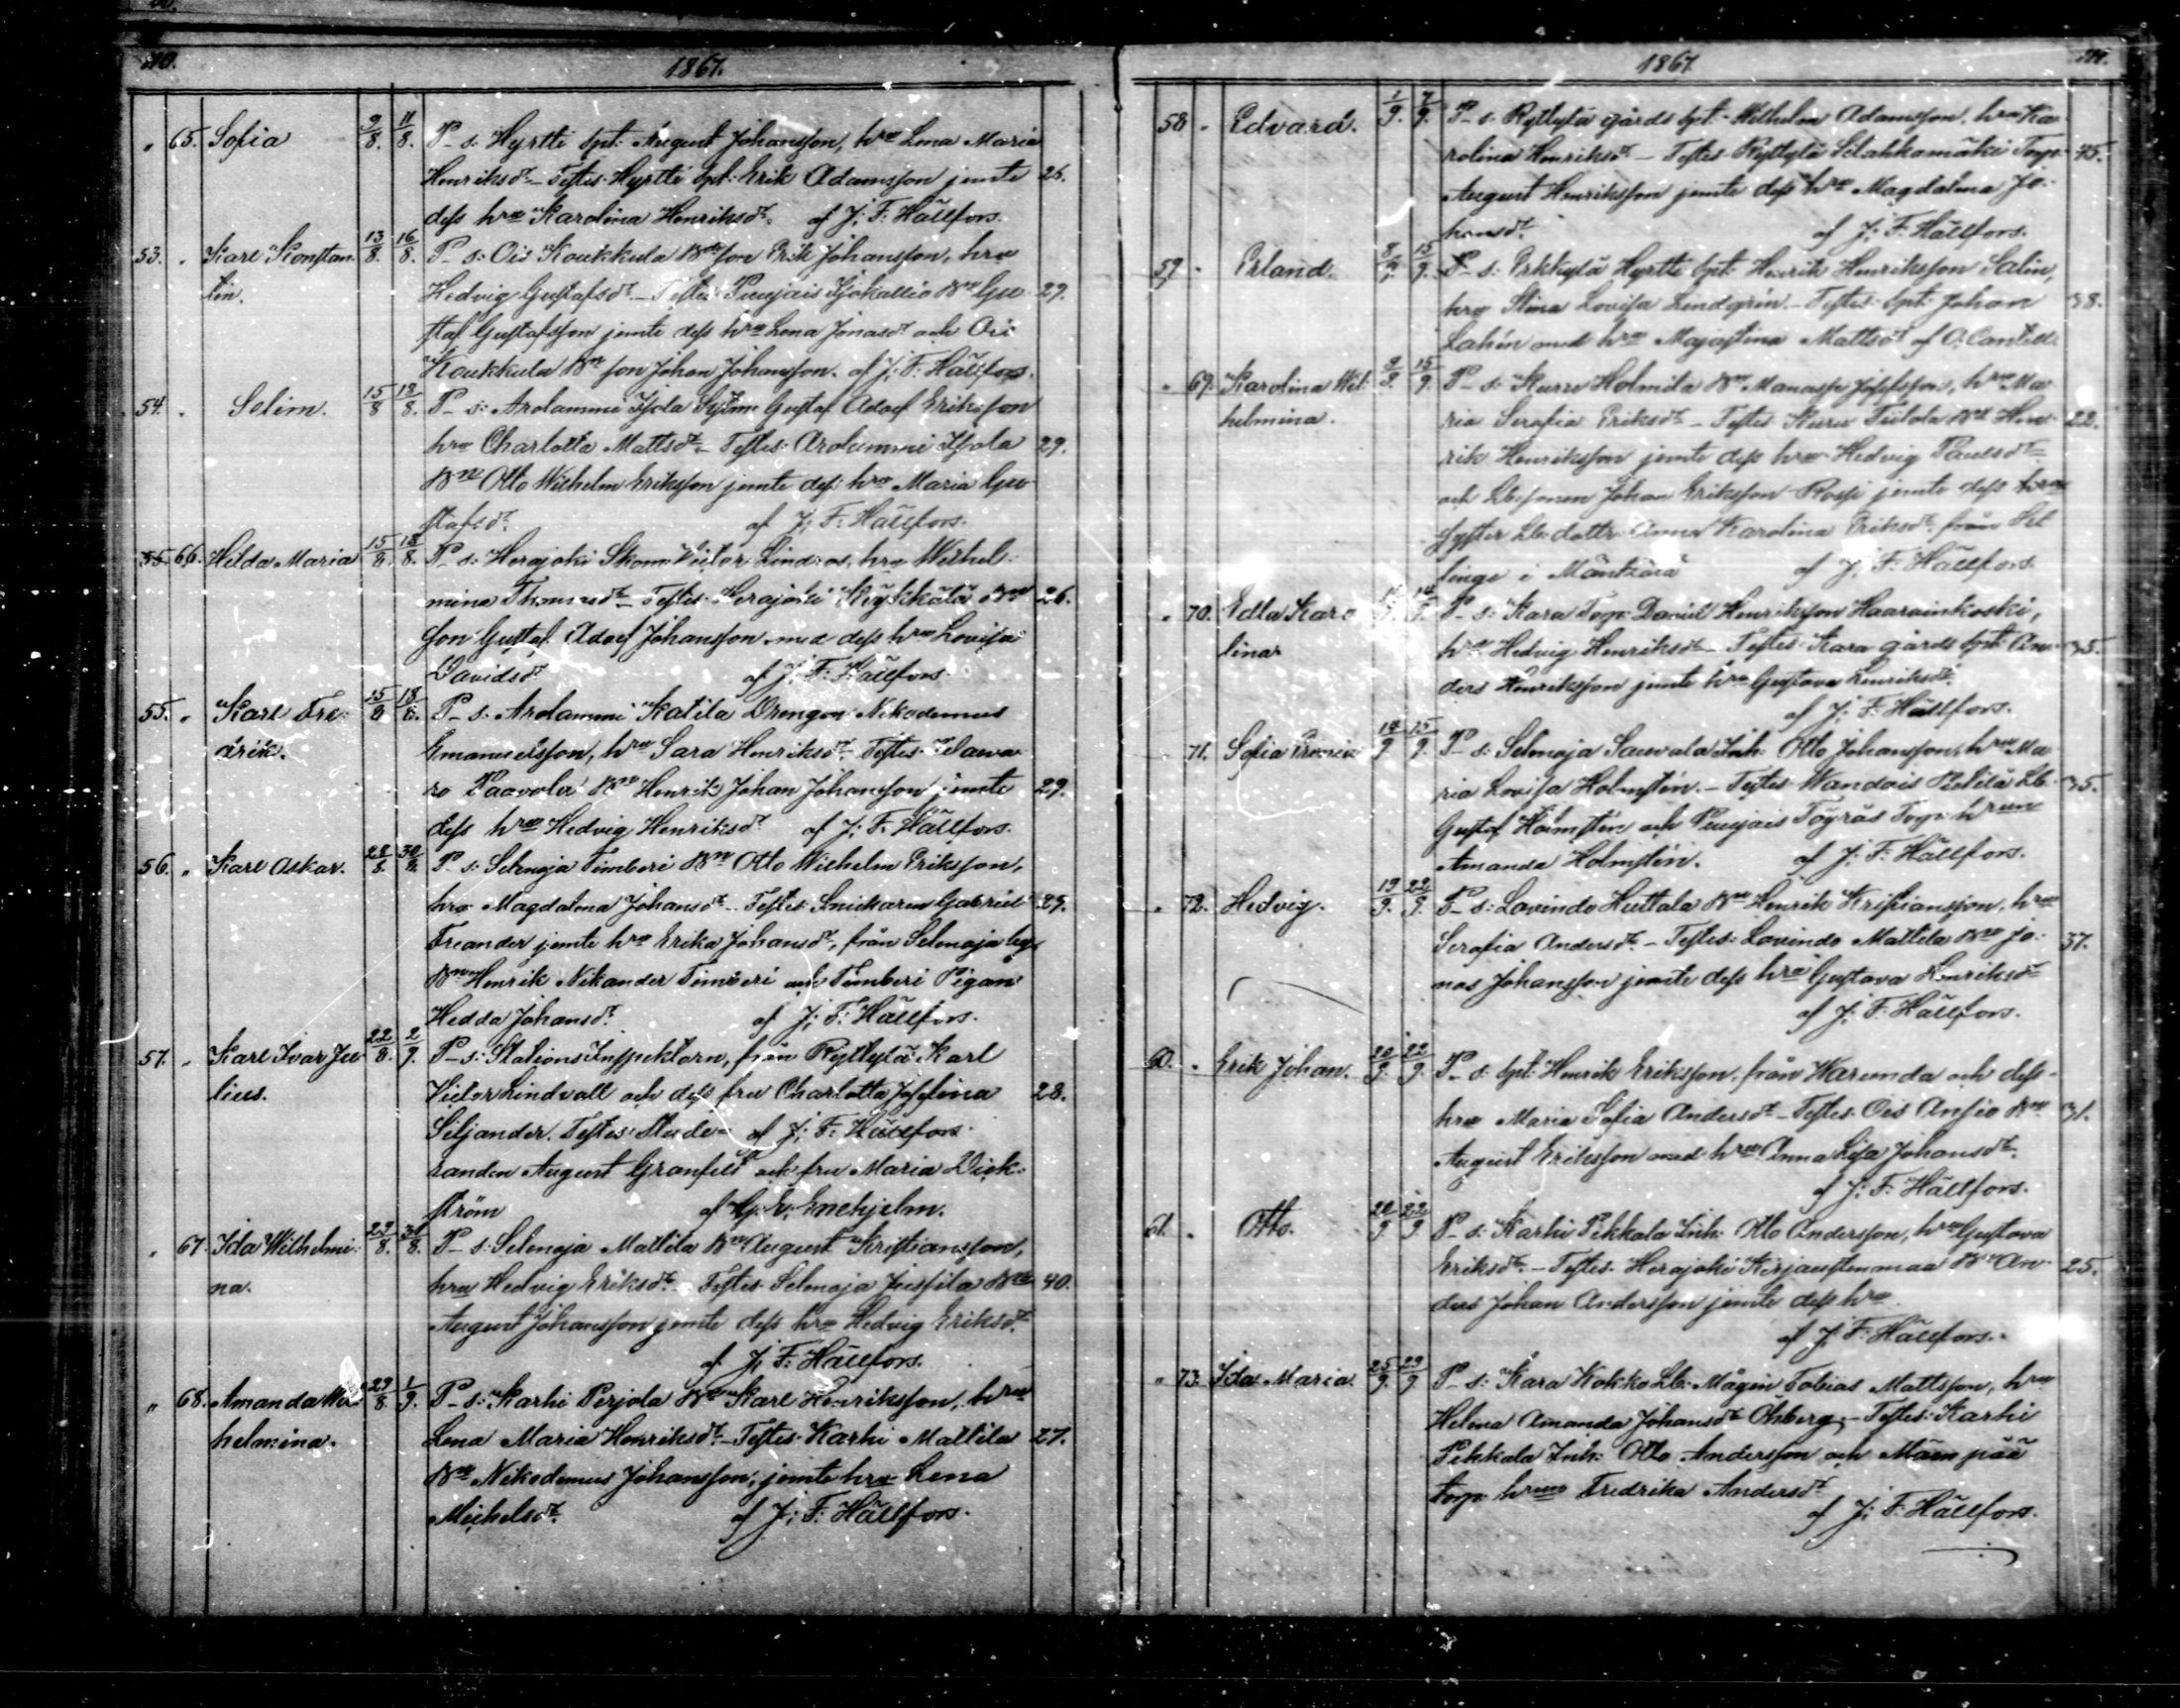 1867.
65. Sofia 9/8. 11/8. P_s: Hyrtti Spt: August Johansson, hro Lena Maria
Henriksdr. – Testes: Hyrtti Spt: Erik Adamsson jemte 26.
dess hro Karolina Henriksdr. af J. F. Hällfors.
53. Karl Konstan- 13/8. 16/8. P_s: Ois Koukkula Bdeson Erik Johansson, hro
tin. Hedvig Gustafsdr. – Testes: Isokallio Bn Gu- 29.
staf Gustafsson jemte dess hro Lena Jonasdr och Ois
Koukkula Bn son Johan Johansson. af J. F. Hällfors.
54. Selim. 15/8 18/8. P_s: Arolammi Isola Gustaf Adolf Eriksson
hro Charlotta Mattsdr. – Testes: Arolammi Isola 29.
Bn Otto Wilhelm Eriksson jemte dess hro Maria Gu-
stafsdr. af J. F. Hällfors.
66. Hilda Maria 15/8. 18/8. P_s: Herajoki Skom: Victor hro Wilhel-
mina Thomasdr – Testes: Herajoki Bn 26.
son Gustaf Adolf Johansson med dess hro Lovisa
Davidsdr af J. F. Hällfors
55. Karl Fre- 15/8 18/8. P_s: Arolammi Katila Drengen Nikodemus
drik. Emanuelsson, hro Sara Henriksdr. Testes:
Paavola Bn Henrik Johan Johansson jemte 29.
dess hro Hedvig Henriksdr. af J. F. Hällfors.
56. Karl Oskar. 28/8. 30/8. P_s: Selmaja Timberi Bn Otto Wilhelm Eriksson,
hro Magdalena Johansdr. – Testes: Snickaren Gabriel 39.
Treander jemte hro Erika Johansdr, från Selmaja
Bn Henrik Nikander Timberi och Timberi Pigan
Hedda Johansdr. af J. F. Hällfors.
57. Karl Ivar Ju- 22/8. 2/9. P_s: Stations Inspektorn, från Ryttylä Karl
lius. Victor Lindvall och dess fru Charlotta Josefina 28.
Siljander. Testes: Stude- af J. F. Hällfors
randen August Granfelt och fru Maria Wick-
ström af G. V. Enehjelm.
67. Ida Wilhelmi- 29/8. 30/8. P_s: Selmaja Mattila Bn August Kristiansson,
na. hro Hedvig Eriksdr. Testes: Selmaja Bn 40.
August Johansson jemte dess hro Hedvig Eriksdr.
af J. F. Hällfors.
68. Amanda Wil- 29/8 1/9. P_s: Karhi Perjola Bn Karl Henriksson, hro
helmina. Lena Maria Henriksdr. – Testes: Karhi Mattila 27.
Bn Nikodemus Johansson, jemte hro Lena
Michelsdr. af J. F. Hällfors.
1867
58. Edvard. 1/9. 7/9. P_s: Ryttylä gårds Spt: Wilhelm Adamsson, hro Ka-
rolina Henriksdr – Testes: Ryttylä Torp: 45.
August Henriksson jemte dess hro Magdalena Jo-
hansdr. af J. F. Hällfors.
59. Erland. 8/9. 15/9. P_s: Erkkylä Hyrtti Spt: Henrik Henriksson Salin,
hro Stina Lovisa Lindgrin. – Testes: Spt: Johan 38.
Lahén med hro Majastina Mattsdr af
69. Karolina Wil- 9/9. 15/9. P_s: Kurre Holmila Bn Manasse Josefsson, hro Ma-
helmina. ria Serafia Eriksdr – Testes: Kurre Bn Hen- 22.
rik Henriksson jemte dess hro Hedvig Paulsdr
och Lb:sonen Johan Eriksson Rossi jemte dess
syster Lb: dottr: Anna Karolina Eriksdr från
i Mäntzälä af J. F. Hällfors.
70. Edla Karo- P_s: Kara Torp: Daniel Henriksson Haarainkoski,
lina hro Hedvig Henriksdr – Testes: Kara gårds Spt: An- 35.
ders Henriksson jemte hro Gustava Henriksdr.
af J. F. Hällfors.
71. Sofia 14/9 15/9. P_s: Selmaja Sauvala Inh: Otto Johansson, hro Ma-
ria Lovisa Holmstén. – Testes: Wandois Lb. 35.
Gustaf Holmstén och Torp: hrun
Amanda Holmstén. af J. F. Hällfors.
72. Hedvig. 19/9. 22/9. P_s: Lavindo Huttala Bn Henrik Kristiansson, hro
Serafia Andersdr. – Testes: Lavindo Mattila Bn Jo- 37.
nas Johansson jemte dess hro Gustava Henriksdr
af J. F. Hällfors.
60. Erik Johan. 20/9. 22/9. P_s: Spt: Henrik Eriksson, från Warunda och dess
hro Maria Sofia Andersdr – Testes: Ois Ansio Bn 31.
August Eriksson med hro Anna Lisa Johansdr.
af J. F. Hällfors.
61. Otto. 20/9 22/9 P_s: Karhi Pekkala Inh: Otto Andersson, hro Gustava
Eriksdr. – Testes: Herajoki Bn An- 25.
ders Johan Andersson jemte dess hro
af J. F. Hällfors.
73. Ida Maria. 25/9. 29/9 P_s: Kara Kokko Lb: Mågen Tobias Mattsson, hro
Helena Amanda Johansdr Ohberg. – Testes: Karhi
Pekkala Inh: Otto Andersson och
torp hrun Fredrika Andersdr
af J. F. Hällfors.